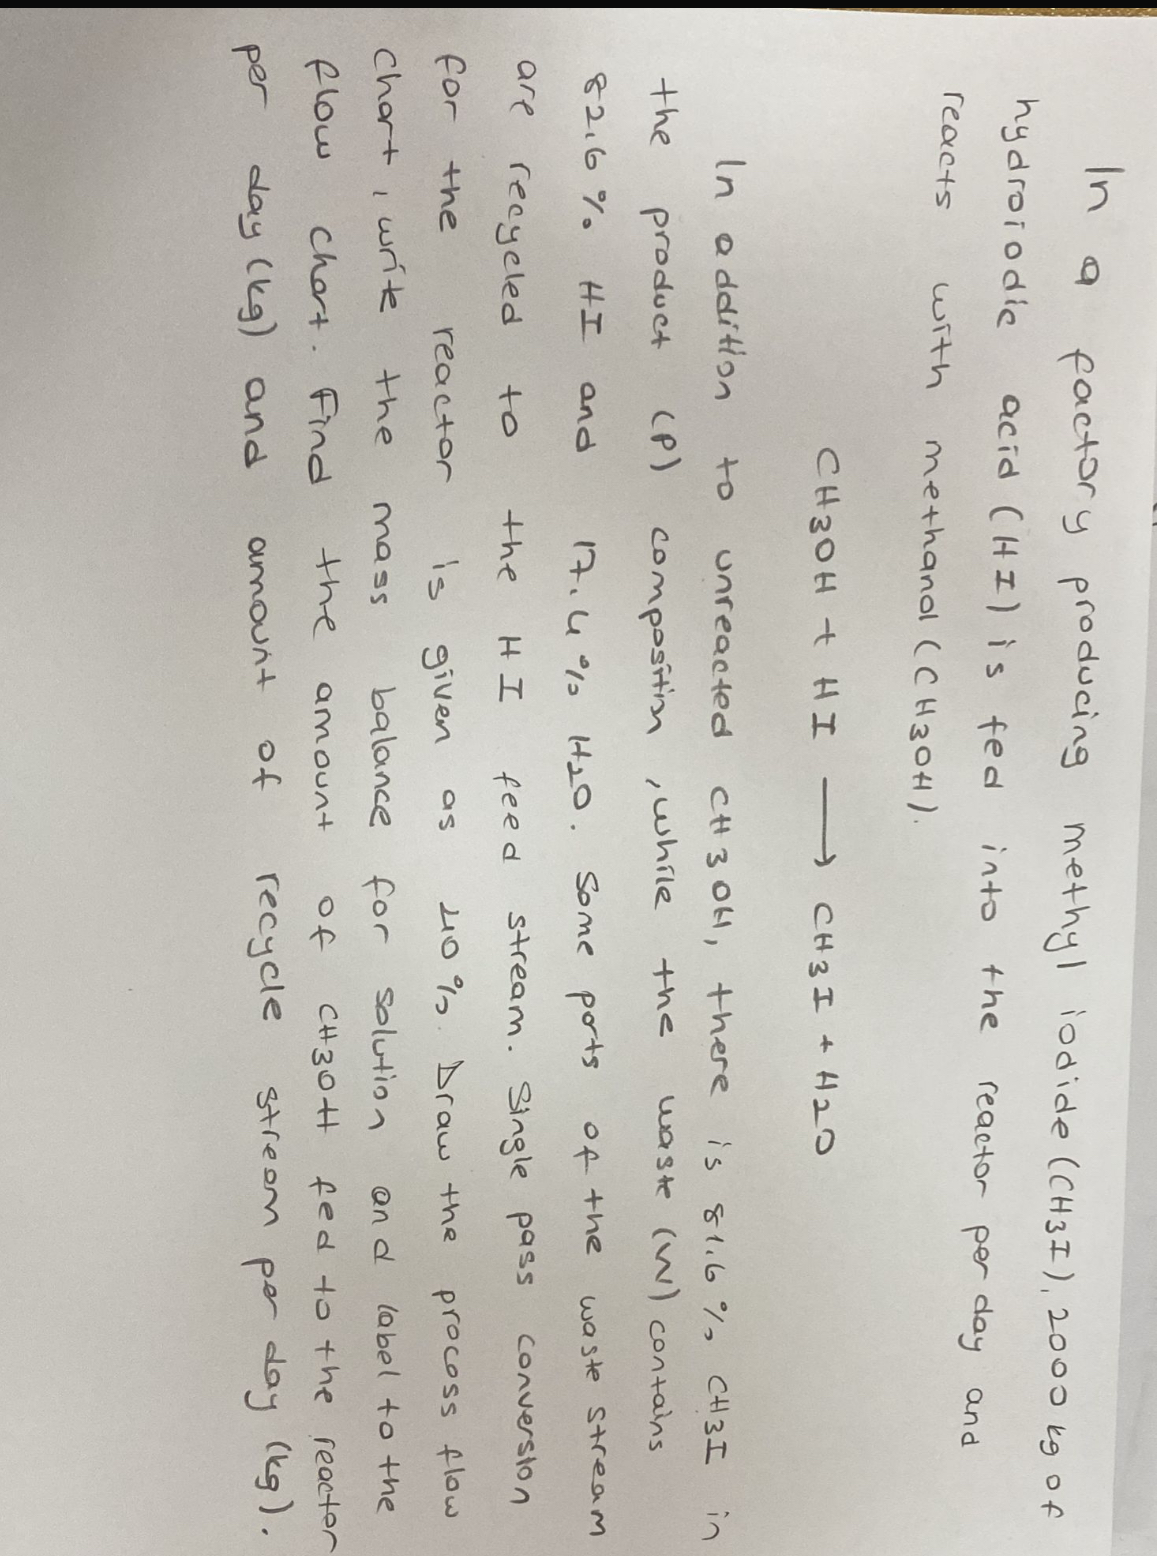 In a factory producing methyl iodide (CH3I), 2000 kg of
hydroiodic acid (HI) is fed into the reactor per day and
reacts with methanol (CH3OH).
CH3OH + HI ⟶ CH3I + H2O
In addition to unreacted CH3OH, there is 81.6 % CH3I in
the product (P) composition, while the waste (W) contains
82.6 % HI and 17.4 % H2O. Some parts of the waste stream
are recycled to the HI feed stream. Single pass conversion
for the reactor is given as 40 %. Draw the process flow
chart, write the mass balance for solution and label to the
flow chart. Find the amount of CH3OH fed to the reactor
per day (kg) and amount of recycle stream per day (kg).